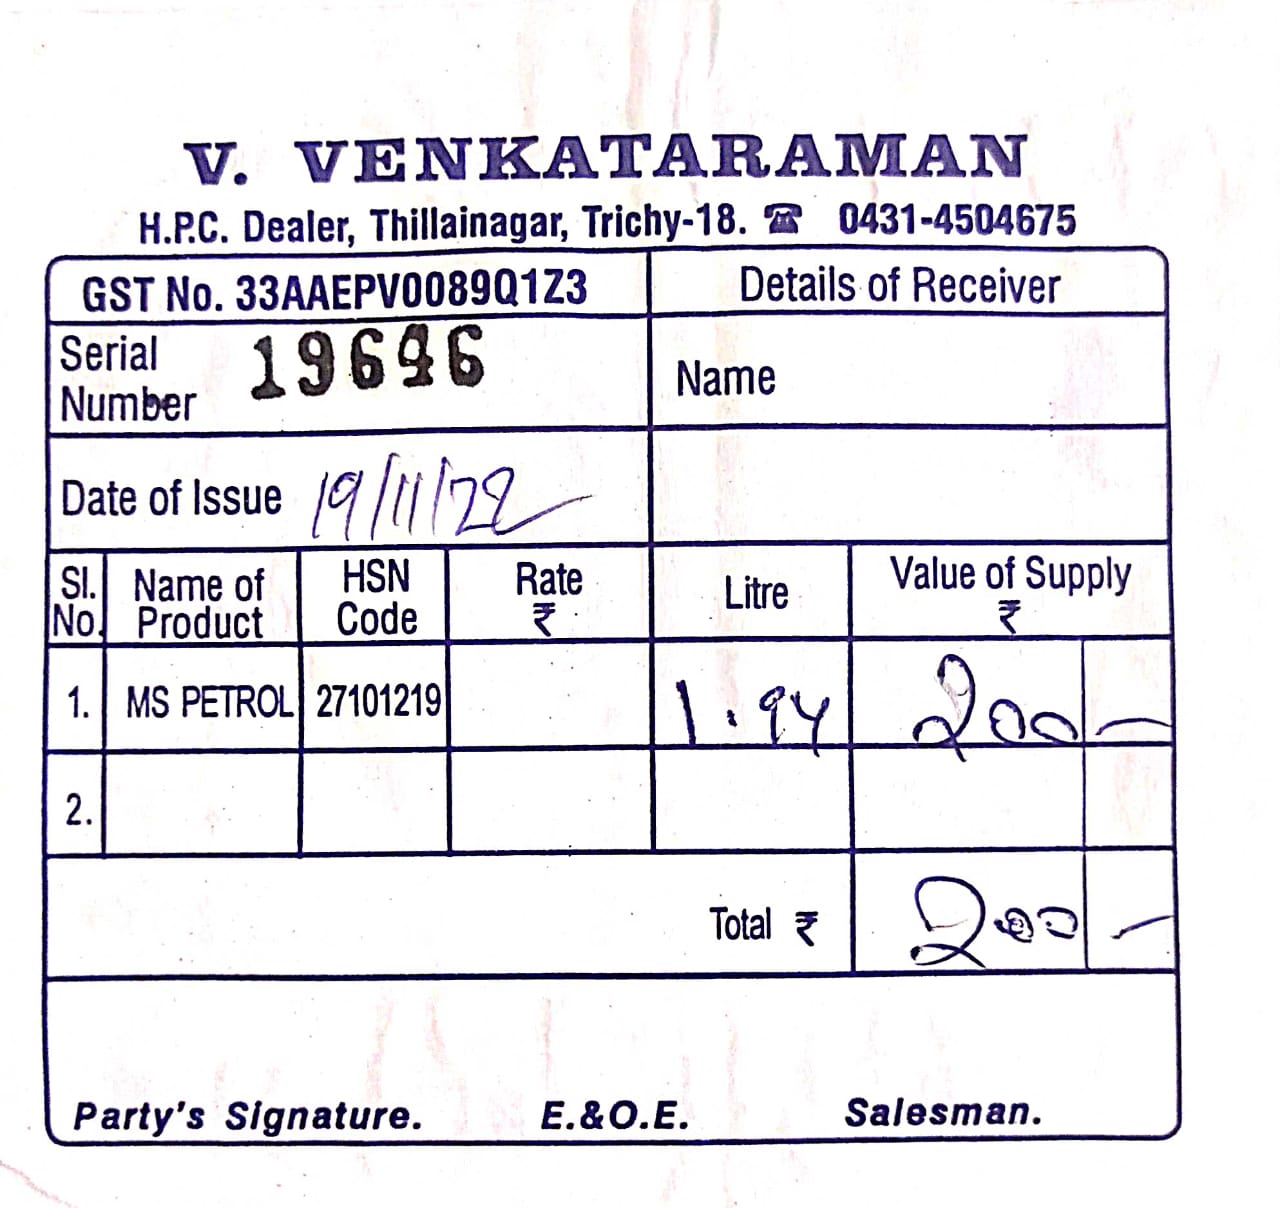 V. VENKATARAMAN
H.P.C. Dealer, Thillainagar, Trichy-18. ☎ 0431-4504675
GST No. 33AAEPV0089Q1Z3 Details of Receiver
Serial Number 19646 Name
Date of Issue 19/11/22
Sl. No. Name of Product HSN Code Rate ₹ Litre Value of Supply ₹
1. MS PETROL 27101219 1.94 200 —
2.
Total ₹ 200 —
Party's Signature. E.&O.E. Salesman.